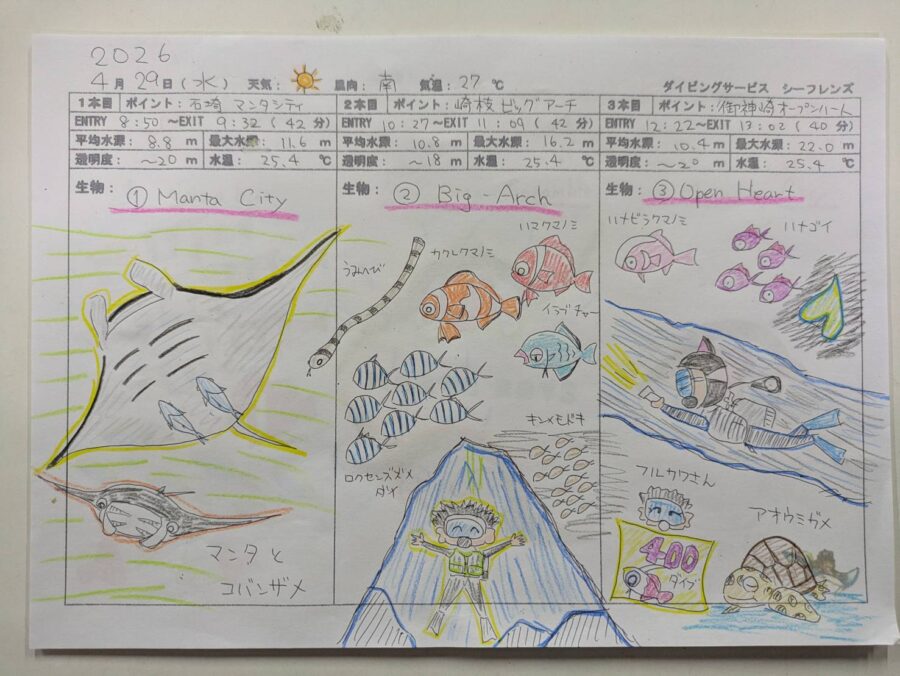 2026
4月29日(水) 天気: 風向: 南 気温: 27℃ ダイビングサービス シーフレンズ
1本目 ポイント: 石崎 マンタシティ
ENTRY 8:50 ~EXIT 9:32 (42分)
平均水深: 8.8 m 最大水深: 11.6 m
透明度: ~20 m 水温: 25.4 ℃
生物: ① Manta City
マンタと
コバンザメ
2本目 ポイント: 崎枝 ビッグアーチ
ENTRY 10:27 ~EXIT 11:09 (42分)
平均水深: 10.8 m 最大水深: 16.2 m
透明度: ~18 m 水温: 25.4 ℃
生物: ② Big-Arch
ハマクマノミ
カクレクマノミ
うみへび
イラブチャー
キンメモドキ
ロクセンスズメ
ダイ
3本目 ポイント: 御神崎オープンハート
ENTRY 12:22 ~EXIT 13:02 (40分)
平均水深: 10.4 m 最大水深: 22.0 m
透明度: ~20 m 水温: 25.4 ℃
生物: ③ Open Heart
ハナビラクマノミ
ハナゴイ
フルカワさん
アオウミガメ
400
ダイブ